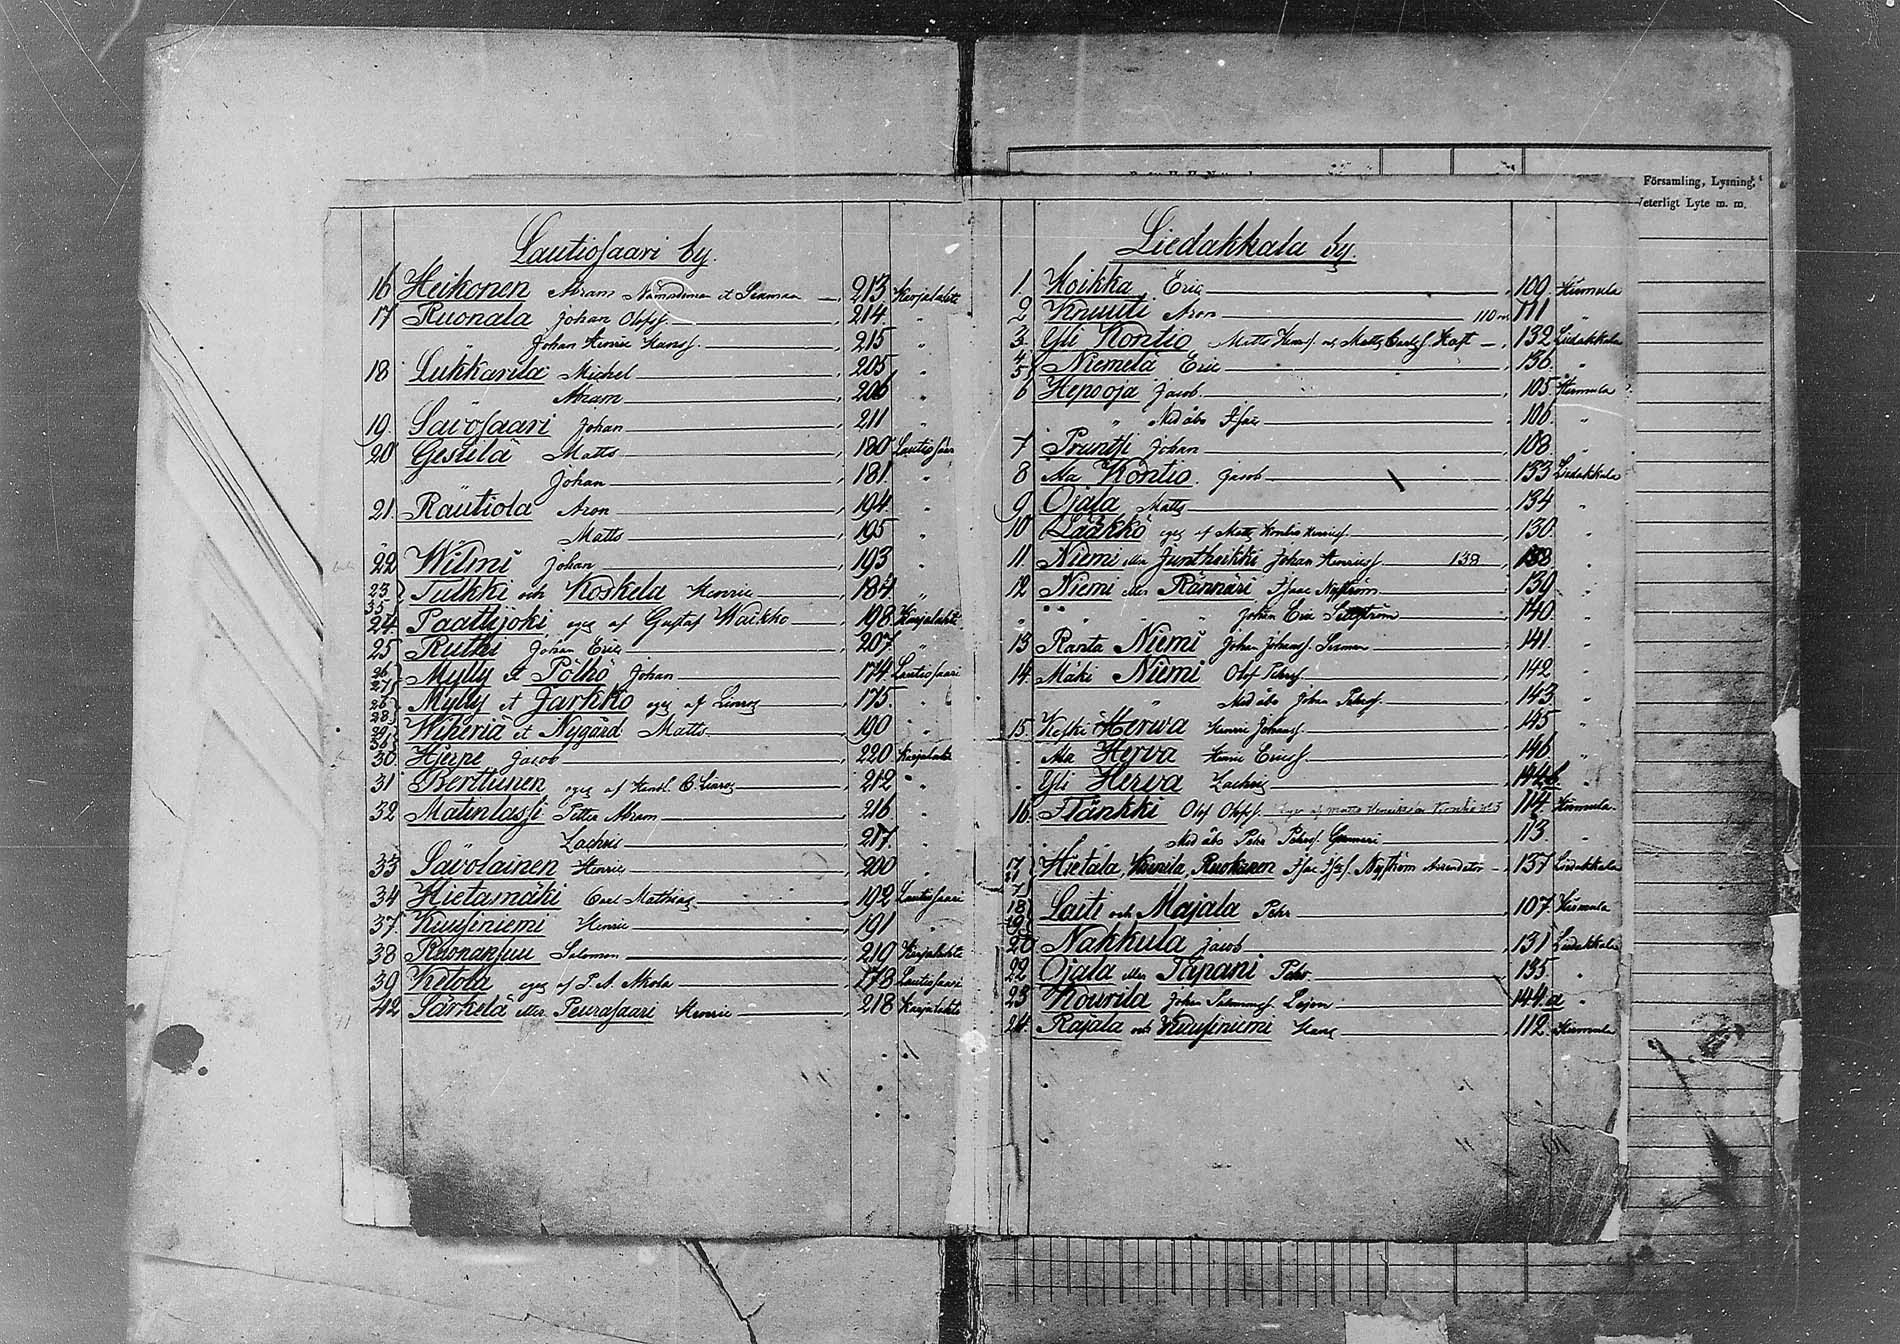 Lautiosaari by.
16 Heikonen Abram Nämndeman et Sexman 213 Karjalahti
17 Ruonala Johan Olofss. 214 "
Johan Henric Hanss. 215 "
18 Lukkarila Michel 205 "
Abram 206 "
19. Savosaari Johan 211 "
20 Gestilä Matts 180 Lautiosaari
Johan 181 "
21. Rautiola Aron 194 "
Matts 195 "
22 Wilmi Johan 193 "
23 35 Tulkki och Koskela Henric 184 "
24. Paattijoki eges af Gustaf Waikko 198 Karjalahti
25 Ruthi Johan Eric 207 "
26 27 Mylly et Pölhö Johan 174 Lautiosaari
26 28 Mylly et Jarkko eges af 175 "
29 36 Wikeriä et Nygård Matts 190 "
30 Hjerpe Jacob 220 Karjalahti
31 Berttunen eges af 212 "
32 Matinlassi Petter Abram 216 "
Zachris 217 "
33 Savolainen Henric 200 "
34 Hietamäki Carl Mathias 192 Lautiosaari
37 Kuusiniemi Henric 191 "
38 Ruonansuu Salomon 219 Karjalahti
39 Ketola eges af 178 Lautiosaari
42 Särkelä eller Peurasaari Henric 218 Karjalahti
Församling, Lysning,
Veterligt Lyte m. m.
Liedakkala by.
1. Koikka Eric 109 Hirmula
2 Knuuti Aron 110 111 "
3. Yli Kontio Matts och Matts 132 Liedakkala
4 5 Niemelä Eric 136 "
6 Hepooja Jacob 105 Hirmula
" Med åbo Isac 106 "
7 Pruntti Johan 108 "
8 Ala Kontio Jacob 133 Liedakkala
9 Ojala Matts 134 "
10 Lääkkö eges af Matts 130 "
11 Niemi eller Juntheikki Johan Henricss. 138 138 "
12 Niemi eller Rännäri Isac Nyström 139 "
" " " Johan Eric 140 "
13 Ranta Niemi Johan Johanss. Sexman 141 "
14 Mäki Niemi Olof Pehrss. 142 "
" Med åbo Johan Pehrss. 143 "
15 Keski Herva Henric Johanss. 145 "
Ala Herva Henric Ericss. 146 "
Yli Herva Zachris 144b "
16. Flänkki Olof Olofss. 114 Hirmula
Med åbo Pehr Pehrss. 113 "
17 21 Hietala, Ruokanen Isac Nyström Arrendator 137 Liedakkala
18 19 Laiti och Majala Pehr 107 Hirmula
20 Nakkula Jacob 131 Liedakkala
22 Ojala eller Tapani Pehr 135 "
23 Kouvila Johan 144a "
24 Rajala och Kuusiniemi Hans 112 Hirmula